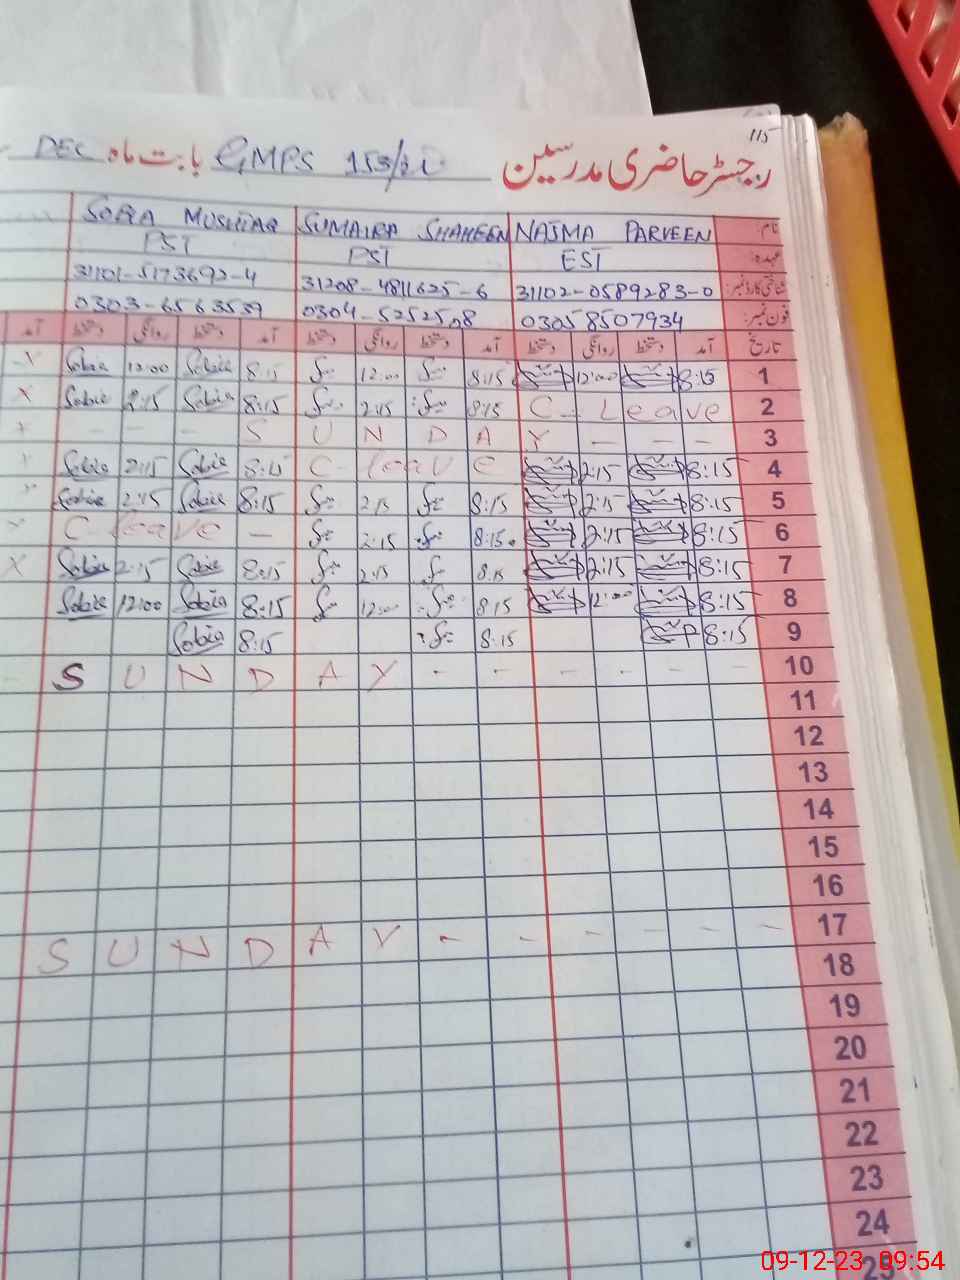 115
رجسٹر حاضری مدرسین GMPS 153/ بابت ماہ DEC
نام: NAJMA PARVEEN SUMAIRA SHAHEEN SOBIA MUSHTAQ
عہدہ: EST PST PST
شناختی کارڈ نمبر: 31102-0589283-0 31208-4811625-6 31101-5173692-4
فون نمبر: 03058507934 0304-5252508 0303-6563539
تاریخ آمد دستخط روانگی دستخط آمد دستخط روانگی دستخط آمد دستخط روانگی دستخط آمد
1 8:15 12:00 8:15 12:00 8:15 Sobia 12:00 Sobia
2 C- Leave 8:15 2:15 8:15 Sobia 2:15 Sobia X
3 - - - S U N D A Y - - - X
4 8:15 2:15 C- leave 8:15 Sobia 2:15 Sobia
5 8:15 2:15 8:15 2:15 8:15 Sobia 2:15 Sobia
6 8:15 2:15 8:15 2:15 C leave -
7 8:15 2:15 8:15 2:15 8:15 Sobia 2:15 Sobia X
8 8:15 12:00 8:15 12:00 8:15 Sobia 12:00 Sobia
9 8:15 8:15 8:15 Sobia
10 S U N D A Y - - - - - -
11
12
13
14
15
16
17 S U N D A Y - - - - - -
18
19
20
21
22
23
24
25
09-12-23 09:54